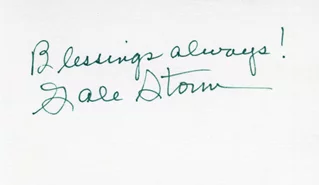 Blessings always!
Gale Storm